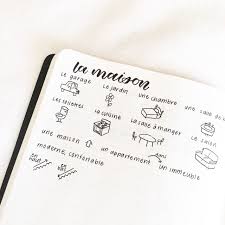 la maison
le garage le jardin une chambre une salle de
les toilettes la cuisine la salle à manger le salon
une maison un appartement un immeuble
moderne, confortable
en haut en bas